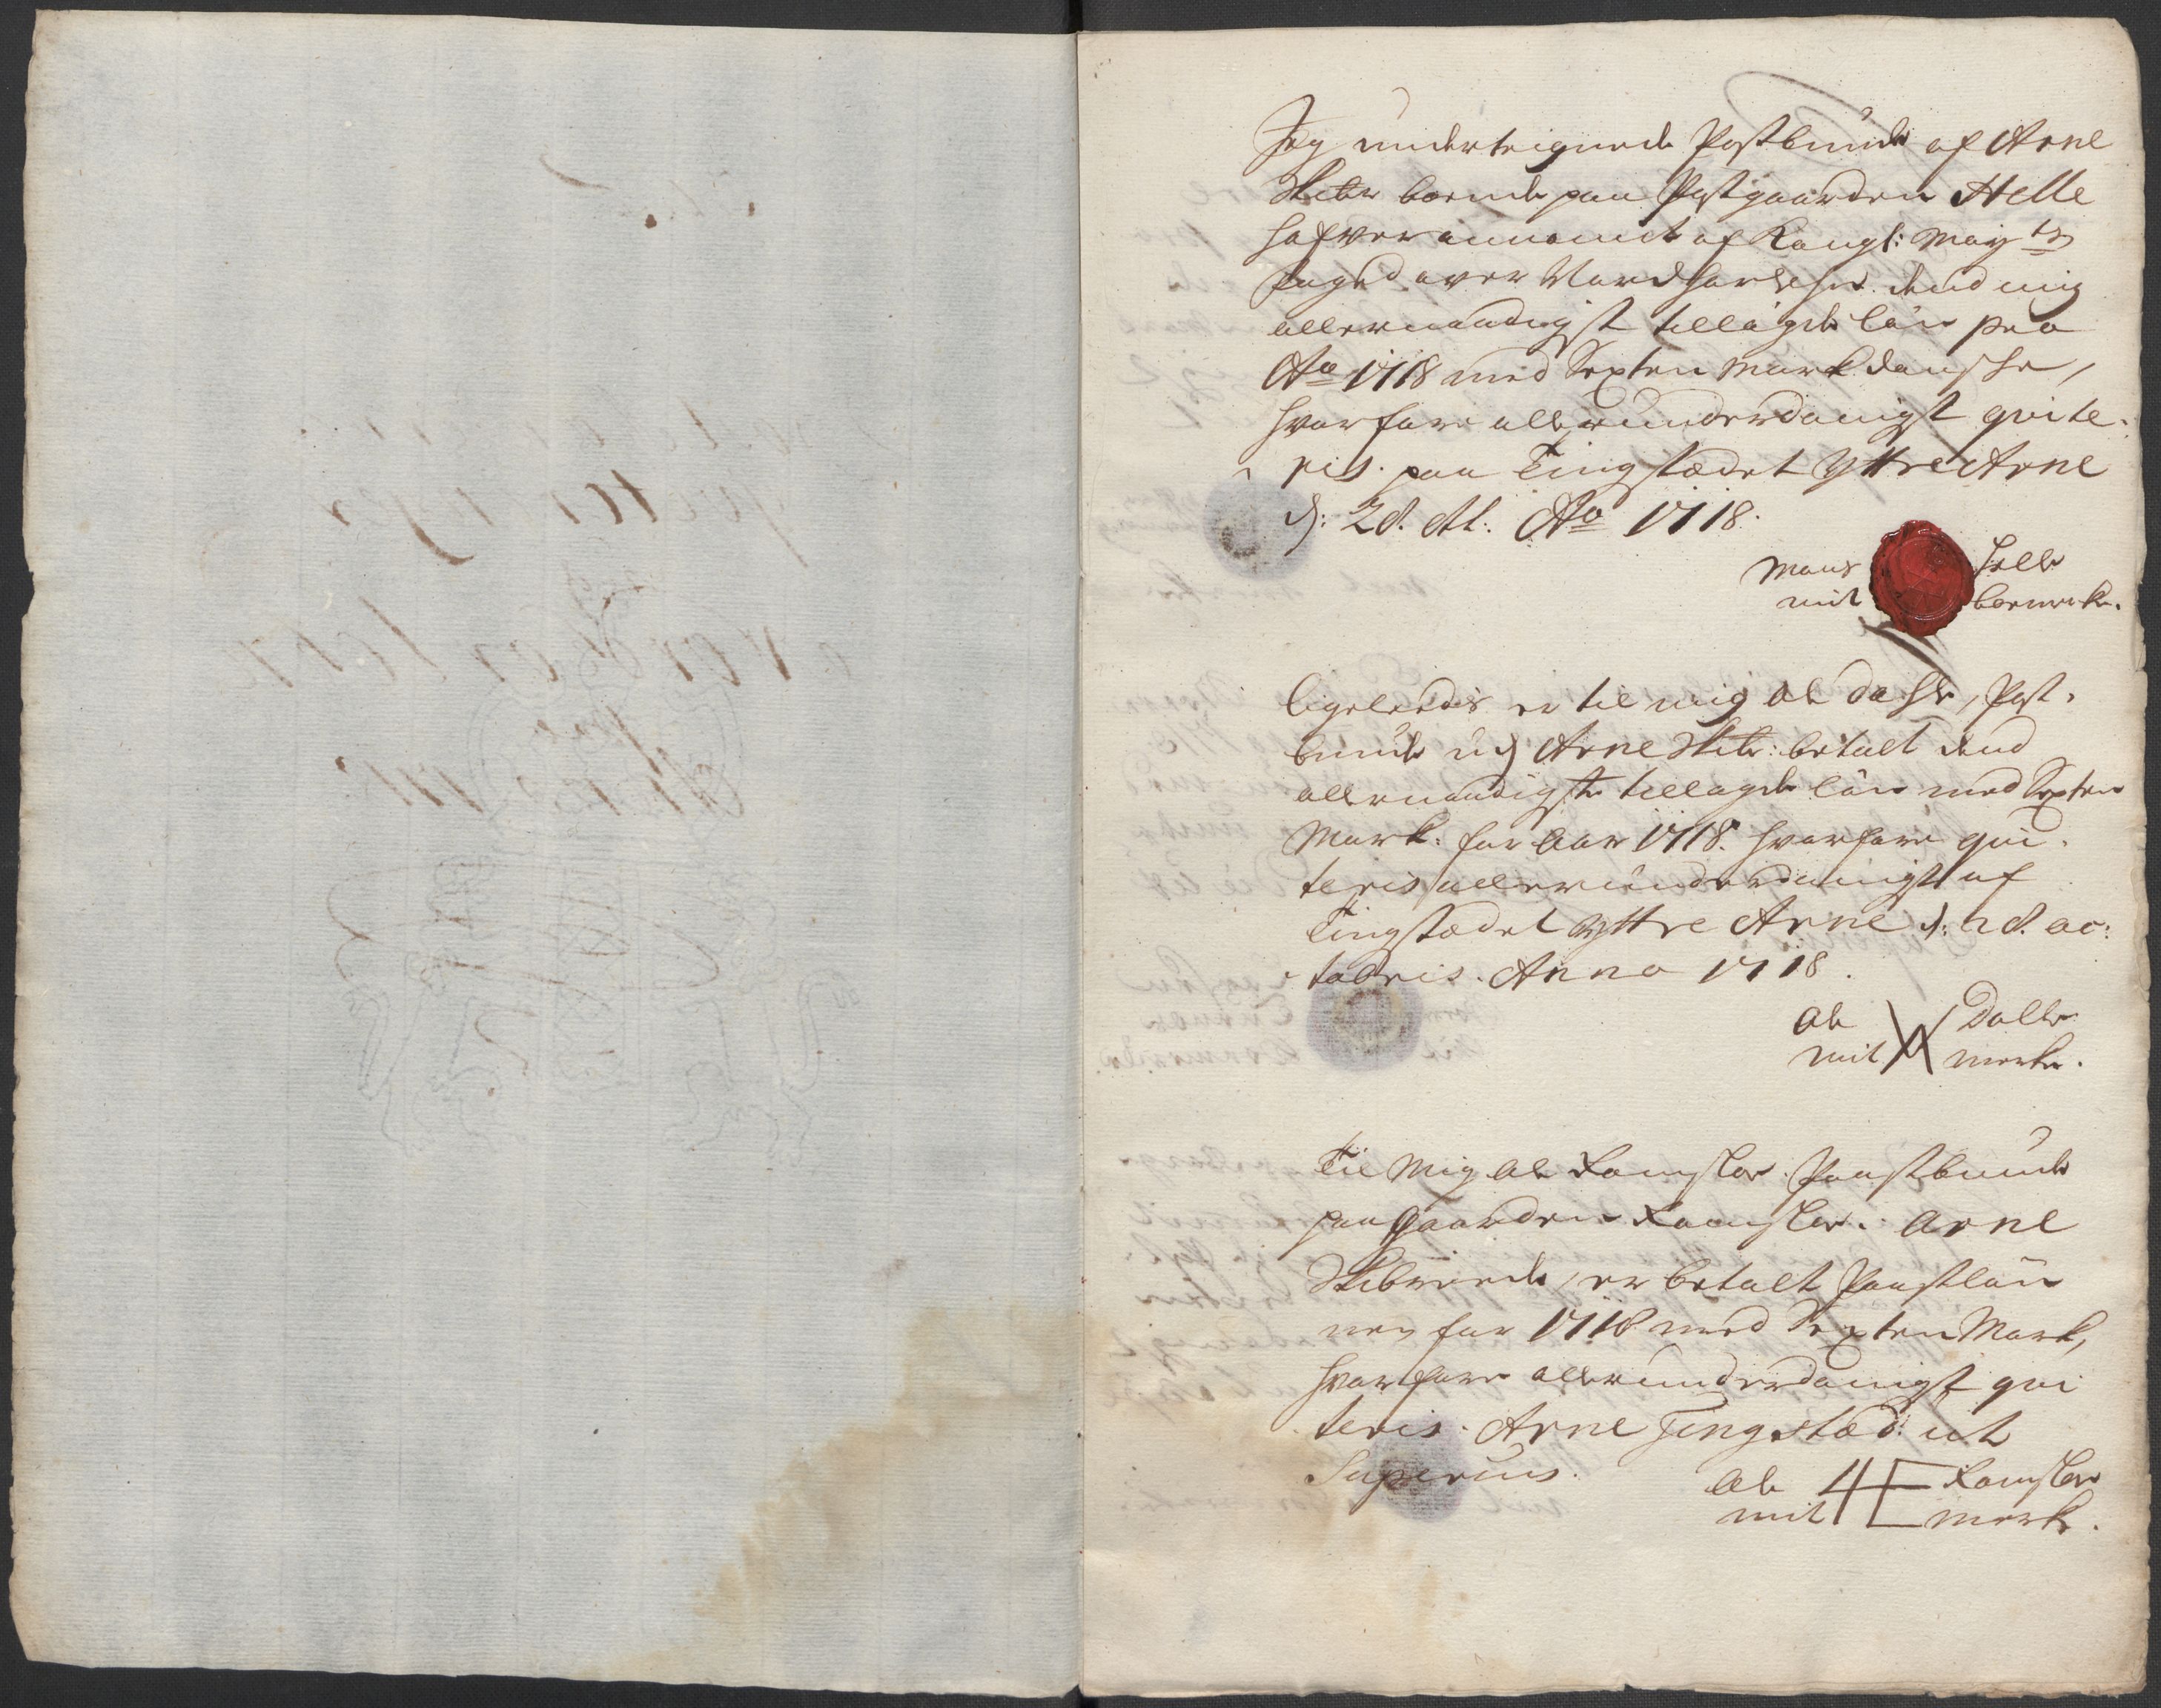 Jeg underteignede Postbunde af Arne
Skibr: boende paa Postgaarden Helle
hafver annammet af Kongl: Mayts
Foged over Nordhorlehn dend mig
allernaadigst tillagde lön pro
Ao 1718 med Sexten Mark danske,
hvorfore allerunderdanigst qvite-
ris. paa Tingstædet Yttre Arne
d: 28. Ao 1718.
Mons Helle
mit boemerke.
ligeledes er til mig Ole Dahle, Post-
bunde udj Arne Skibr: betalt dend
allernaadigste tillagde lön med Sexten
Mark: for Aar 1718. hvorfore qvi-
teris allerunderdanigst af
Tingstædet Yttre Arne d: 28. oc:
tobris. Anno 1718.
Ole Dalle
mit merke.
Til Mig Ole Romsloe Paastbunde
paa Gaarden Romsloe. Arne
Skibrede, er betalt Paastlön
nen for 1718 med Sexten Mark,
hvorfore allerunderdanigst qvi
teris. Arne Tingstæd ut
Superius.
Ole Romsloe
mit merke.